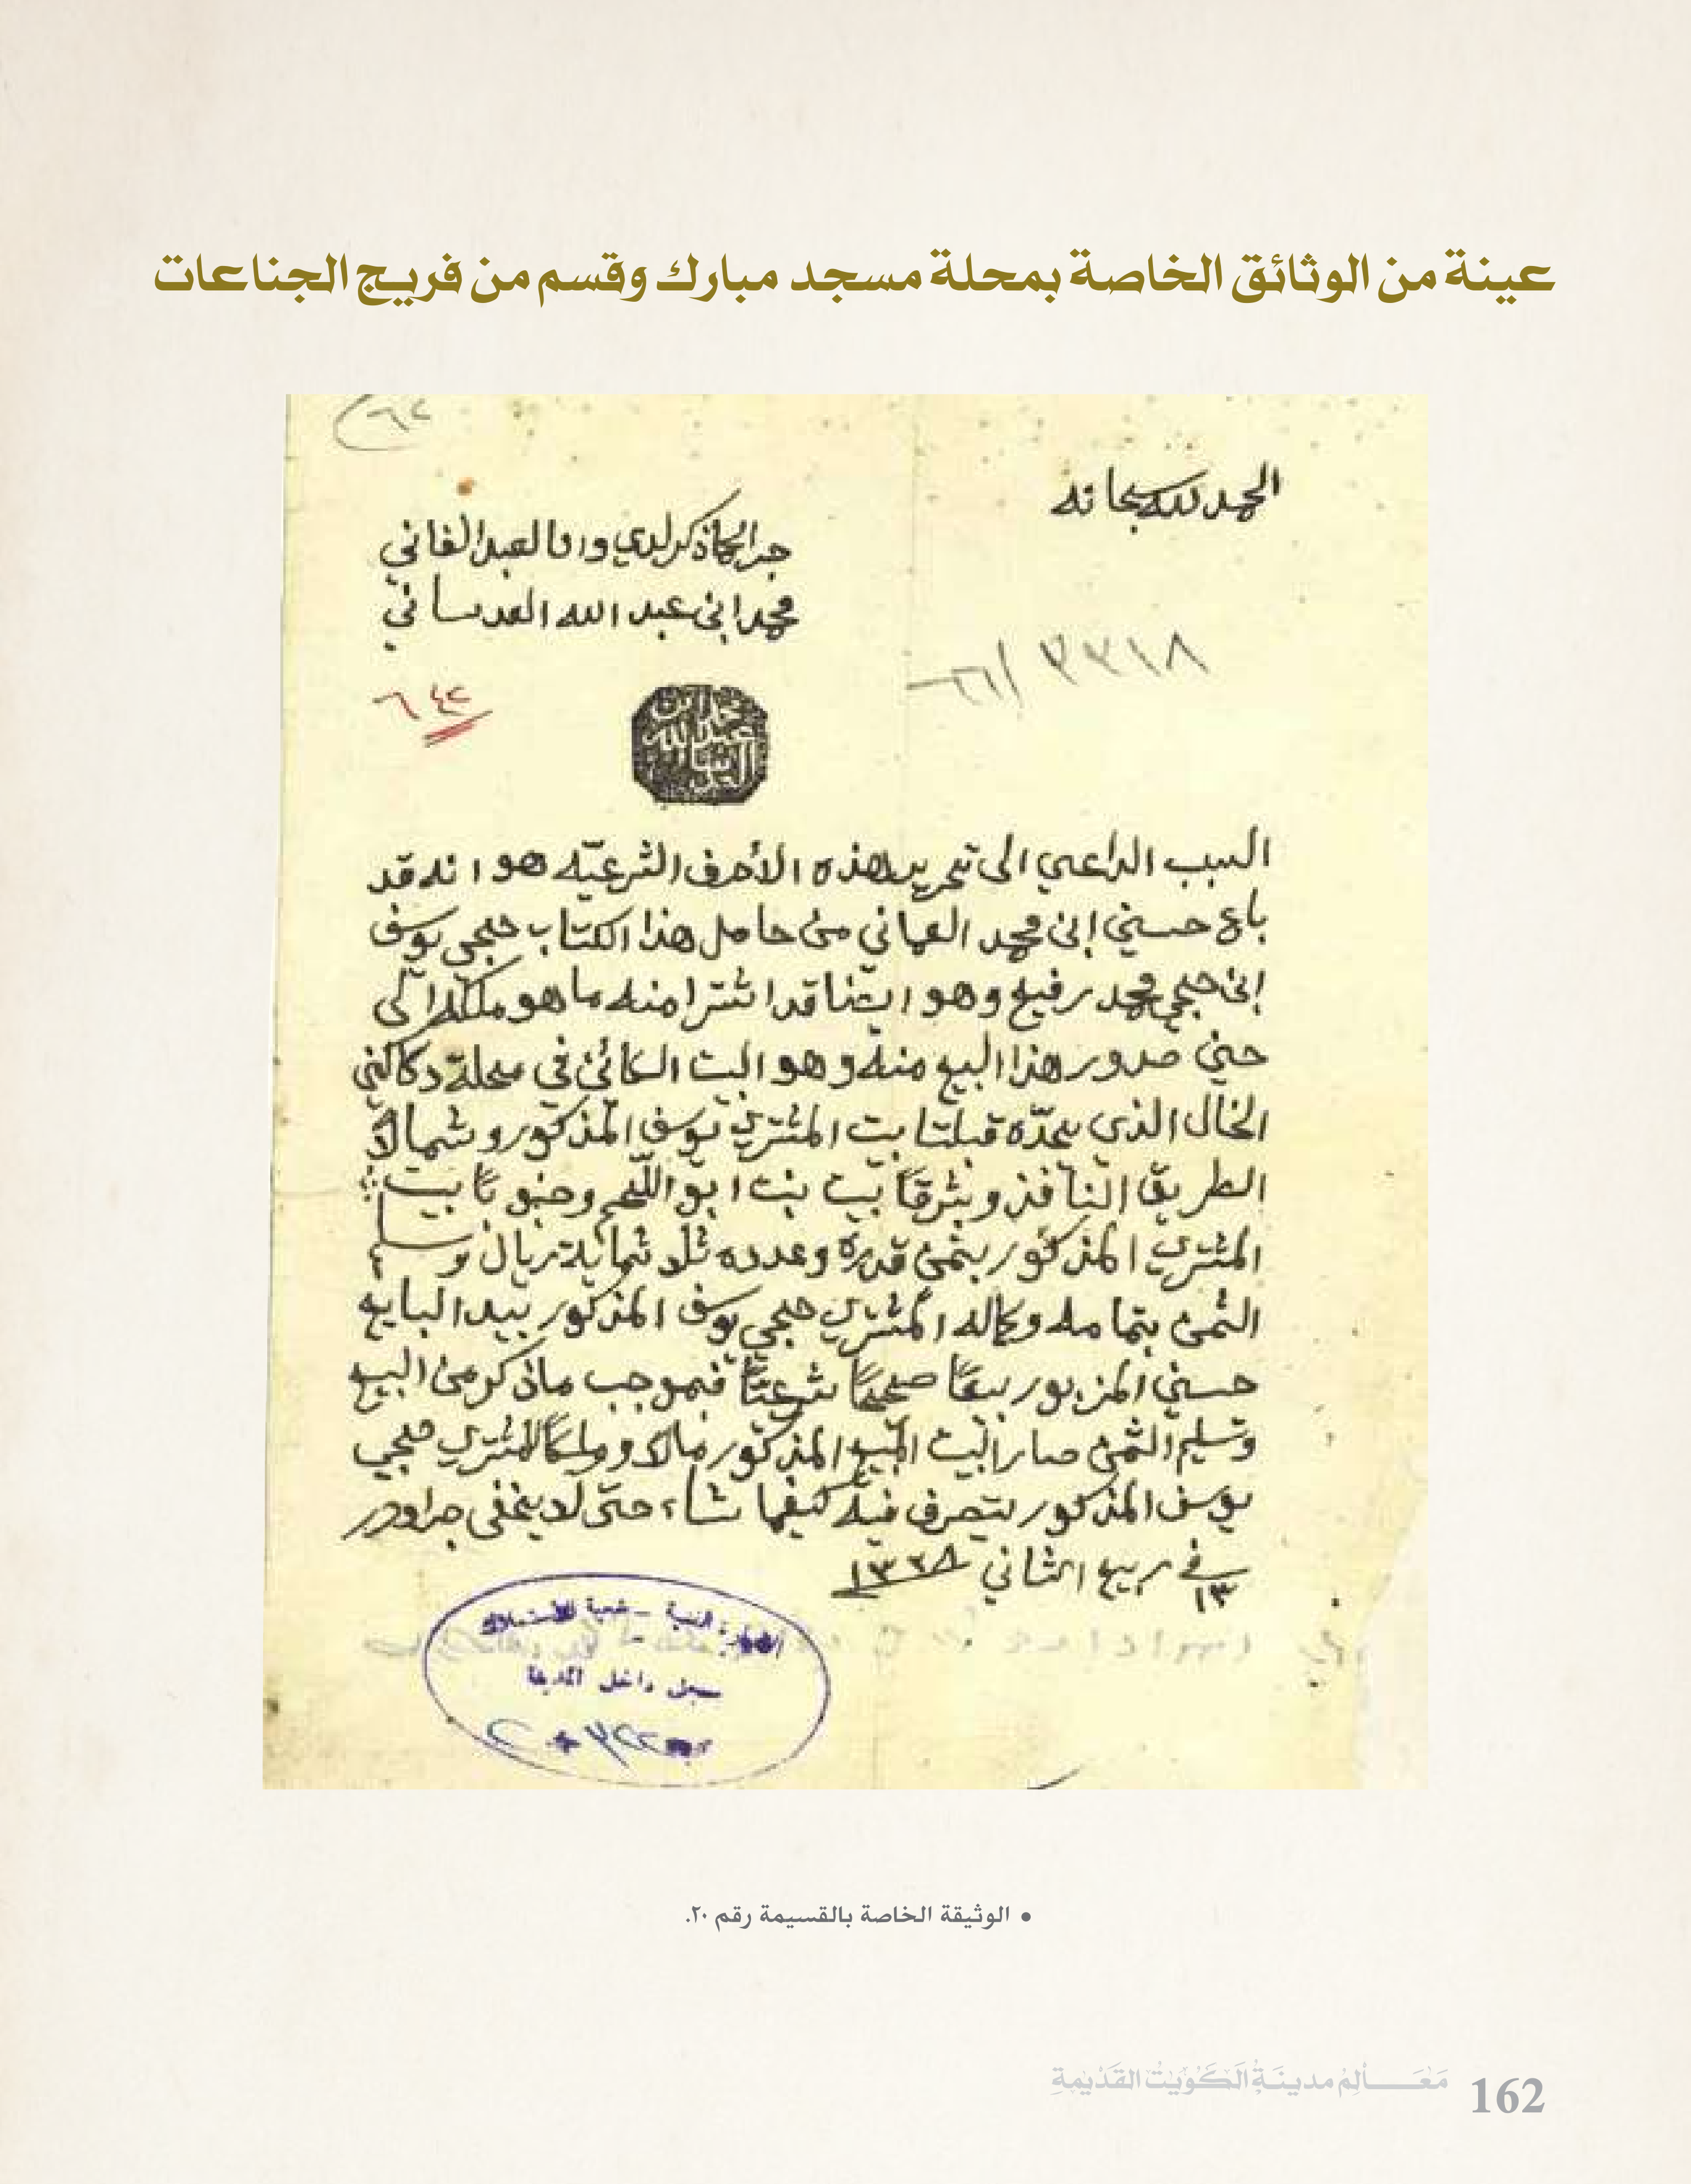 عينة من الوثائق الخاصة بمحلة مسجد مبارك وقسم من فريج الجناعات
الحمد لله سبحانه
جرا لما ذكر لدي وانا العبد الفاني
محمد ابن عبد الله العدساني
٦٤٢
السبب الداعي الى تحرير هذه الأحرف الشرعيّه هو انه قد
باع حسين إبن محمد العماني من حامل هذا الكتاب حجي يوسف
إبن حجي محمد رفيع وهو ايضا قد اشترا منه ما هو ملكه الى
حين صدور هذا البيع منه وهو البيت الكائن في محلة دكاكين
الخال الذي يحدّه قبلتا بيت المشتري يوسف المذكور وشمالاً
الطريق النافذ وشرقاً بيت بنت ابو اللحم وجنوباً بيت
المشتري المذكور بثمن قدره وعدده ثلاثمائة ريال وسلم
الثمن بتمامه وكماله المشتري حجي يوسف المذكور بيد البايع
حسين المزبور بيعاً صحيحاً شرعيّاً فبموجب ما ذكر من البيع
وتسليم الثمن صار البيت المبيع المذكور مالاً وملكاً للمشتري حجي
يوسف المذكور يتصرف فيه كيفما شاء حتى لا يخفى جرا وحرر
في ١٣ ربيع الثاني ١٣٣٨
سجل داخل المدينة
• الوثيقة الخاصة بالقسيمة رقم ٢٠.
مَعَـــالِمُ مدينَةِ الكُوَيْتِ القَدْيمَةِ 162